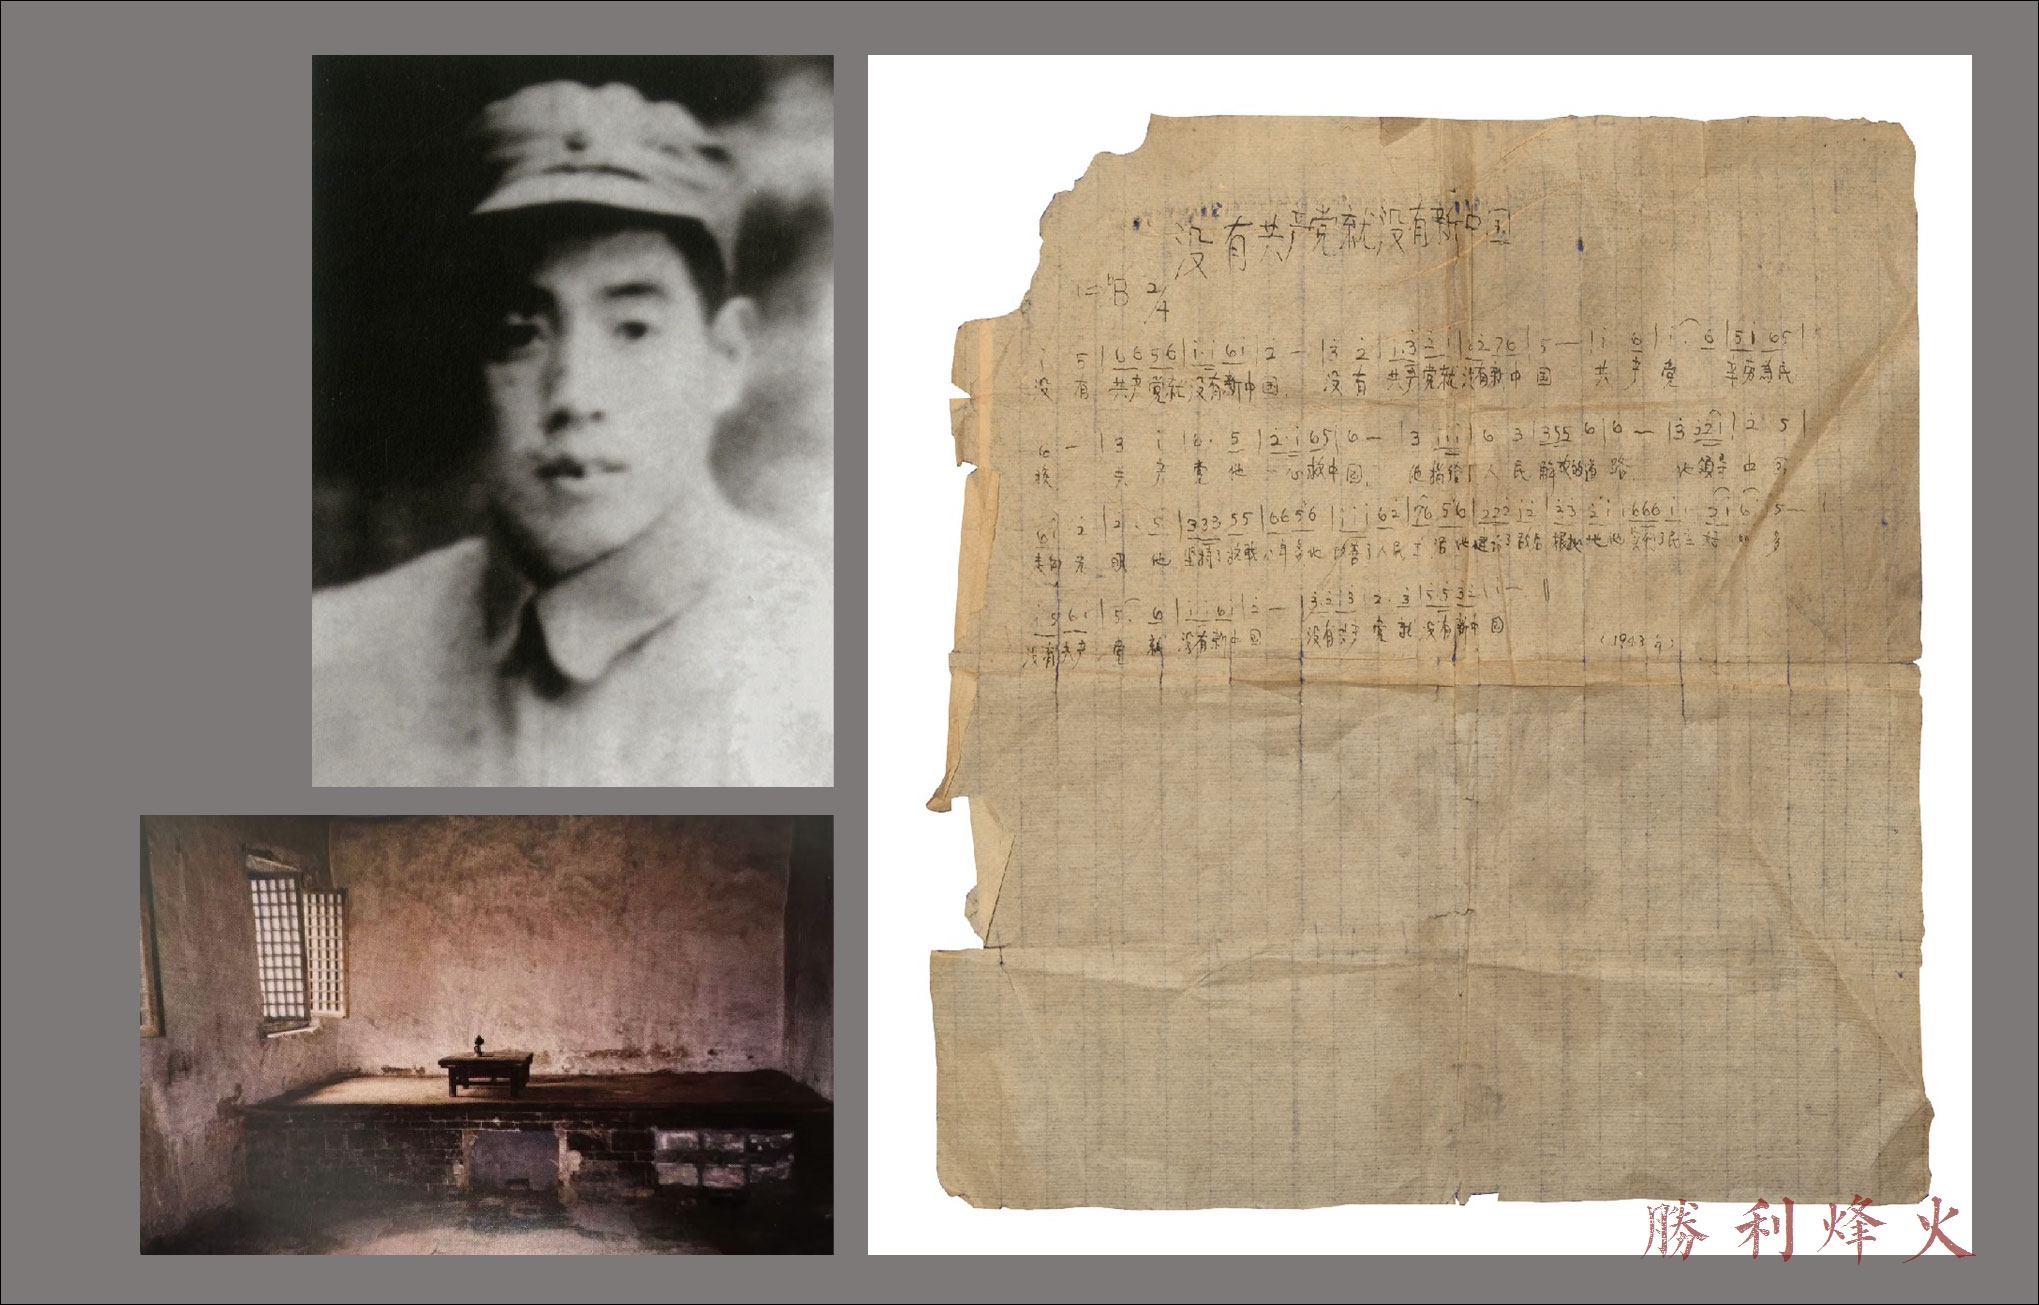 没有共产党就没有新中国
1=ᵇB 2/4
i 5 | 6656 | i·i 6i | 2 — | 3 2 | i·3 2i | 6276 | 5 — | i 6 | i· 6 | 5i 65 |
没 有 共产党就没有新中国. 没有 共产党就没有新中国 共产党 辛劳為民
6 — | 3 i | 6· 5 | 2·i 65 | 6 — | 3 iii | 6 3 | 355 6 | 6 — | 3 22i | 2 5 |
族 共产党他一心救中国, 他指给了人民解放的道路 他領导中国
6i 2 | 2· 5 | 333 55 | 6656 | iii 62 | 76 56 | 222 i2 | 33 2i | i 666 i· | 2i 6 | 5 — |
走向光明 他坚持了抗战八年多他改善了人民生活他建设了敌后根据地他实行了民主好处多
i 5 6i | 5· 6 | i·i 6i | 2 — | 3·2 3 | 2· 3 | 5·5 32 | i — ‖
没有共产党就没有新中国 没有共产党就没有新中国
(1943年)
勝利烽火